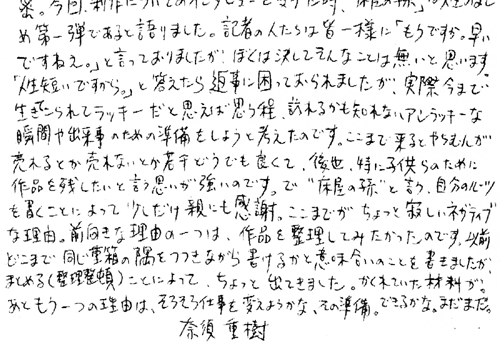 第一弾であると語りました。記者の人たちは皆一様に「もうですか。早い
ですねえ。」と言っておりましたが、ぼくは決してそんなことは無いと思います
「人生短いですから。」と答えたら返事に困っておられましたが、実際今まで
生きてこられてラッキーだと思えば思う程、訪れるかも知れないアンラッキーな
瞬間や出来事のための準備をしようと考えたのです。ここまで来るとやちむんが
売れるとか売れないとか若干どうでも良くて、後世、特に子供らのために
作品を残したいと言う思いが強いのです。で"床屋の孫"と言う、自分のルーツ
を書くことによって少しだけ親にも感謝。ここまでがちょっと寂しいネガティブ
な理由。前向きな理由の一つは、作品を整理してみたかったのです。以前
どこまで同じ重箱の隅をつつきながら書けるかと意味合いのことを書きましたが、
まとめる(整理整頓)ことによって、ちょっと出てきました。かくれていた材料が。
あともう一つの理由は、そろそろ仕事を変えようかな、その準備。できるかな。まだまだ。
奈須 重樹